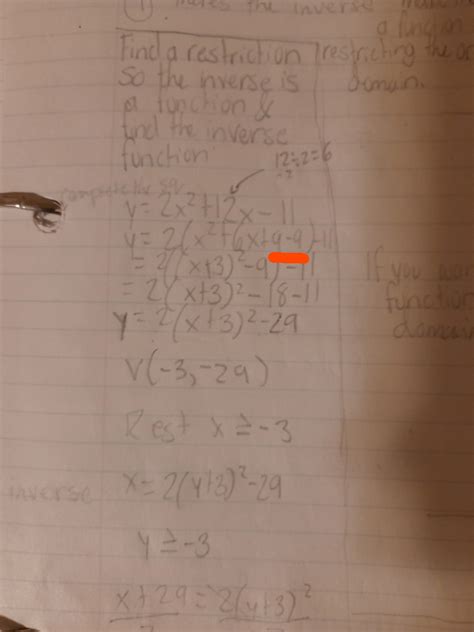 ① makes the inverse
a function
Find a restriction
so the inverse is
a function &
find the inverse
function
restricting the or
domain.
12÷2=6
÷2
y=2x²+12x-11
y=2(x²+6x+9-9)-11
=2((x+3)²-9)-11
=2(x+3)²-18-11
y=2(x+3)²-29
V(-3,-29)
Rest x≥-3
inverse x=2(y+3)²-29
y≥-3
x+29=2(y+3)²
If you
function
domain